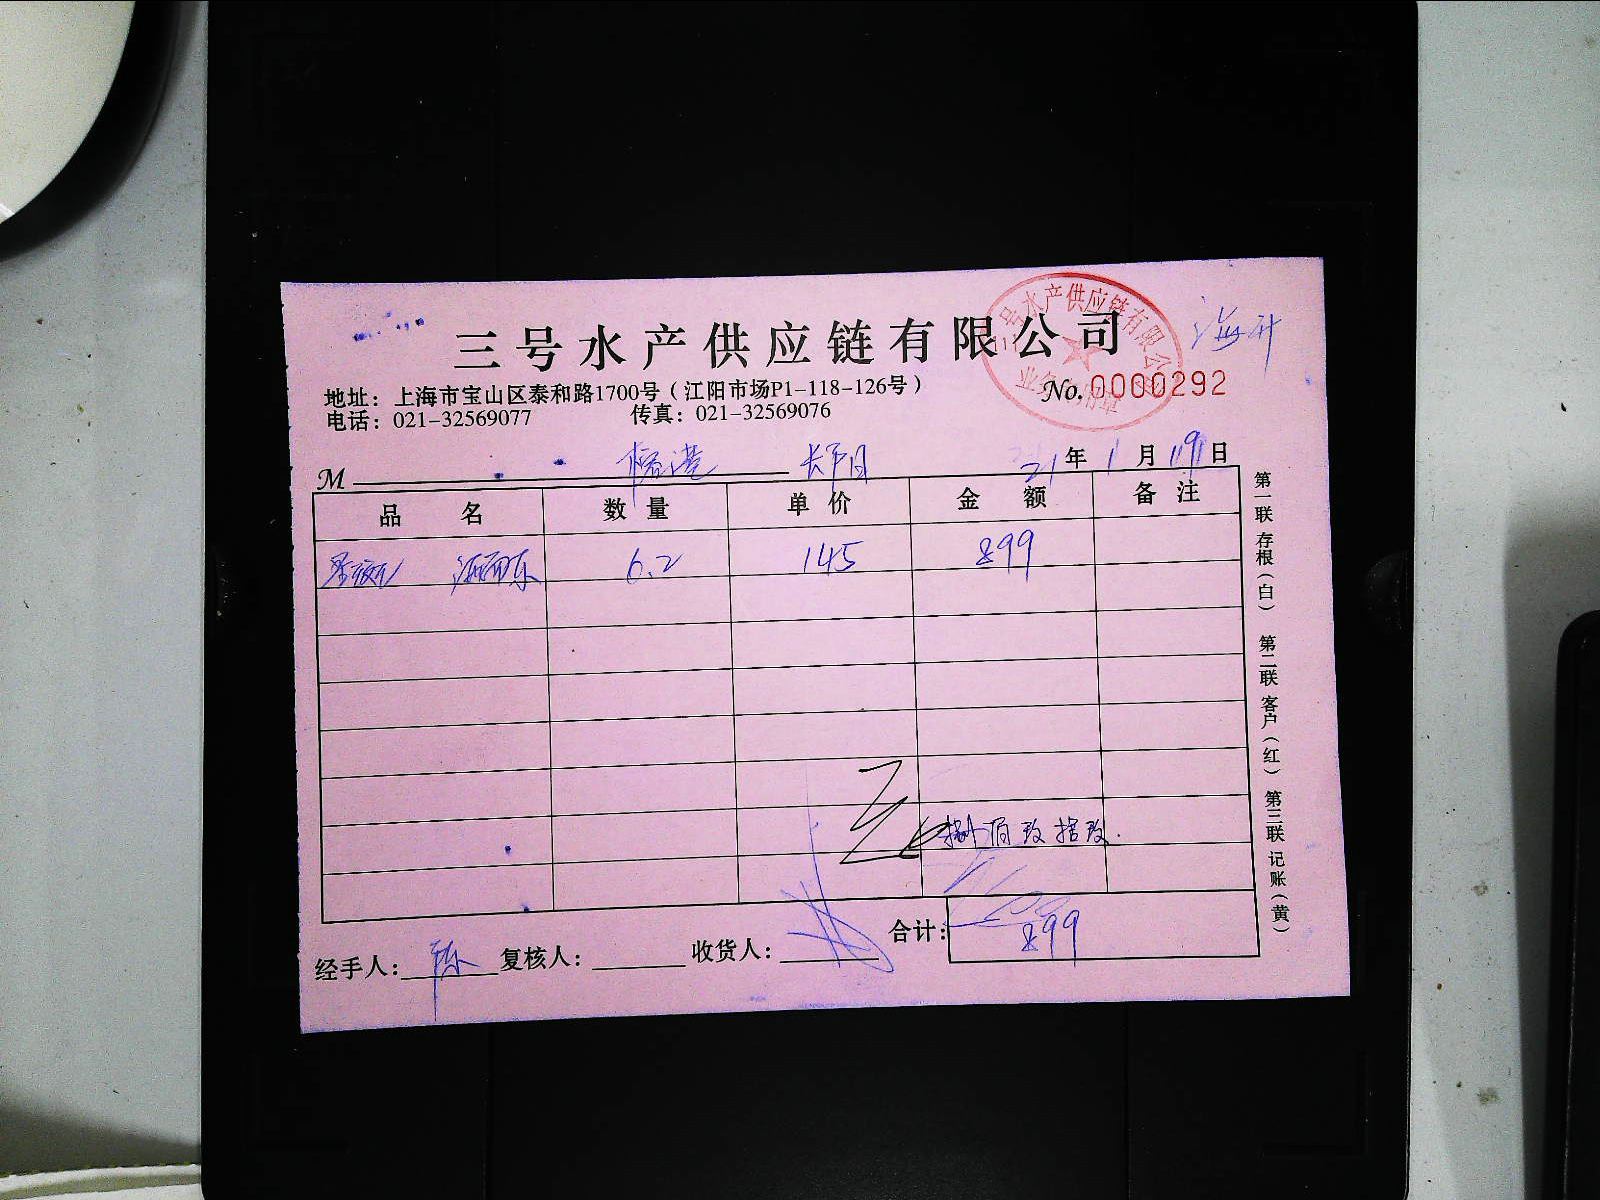 三号水产供应链有限公司
三号水产供应链有限公
业务
海升
地址：上海市宝山区泰和路1700号（江阳市场P1-118-126号）
No. 0000292
电话：021-32569077 传真：021-32569076
M 21年 1月 19日
品名 数量 单价 金额 备注
6.2 145 899
捌佰玖拾玖.
合计: 899
经手人: 陈 复核人: 收货人:
第一联 存根（白） 第二联 客户（红） 第三联 记账（黄）